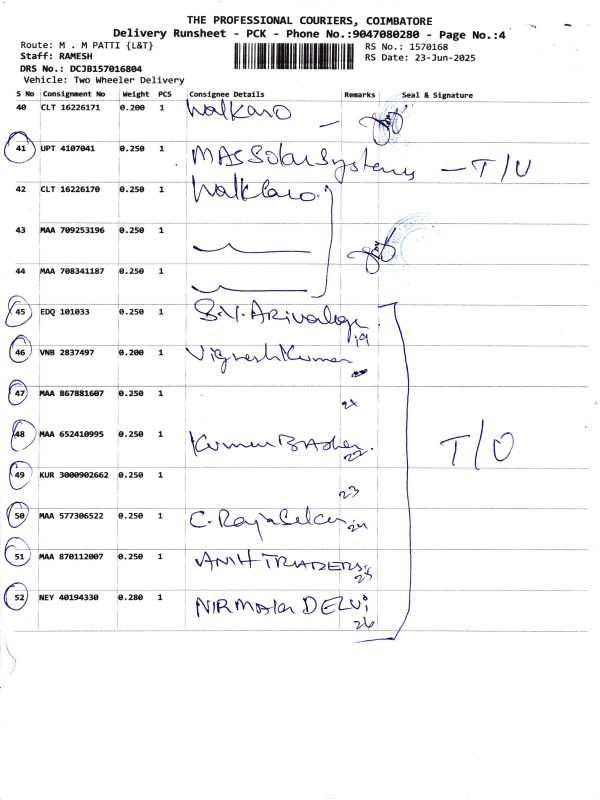 THE PROFESSIONAL COURIERS, COIMBATORE
Delivery Runsheet - PCK - Phone No.:9047080280 - Page No.:4
Route: M . M PATTI {L&T}
RS No.: 1570168
Staff: RAMESH
RS Date: 23-Jun-2025
DRS No.: DCJB157016804
Vehicle: Two Wheeler Delivery
S No Consignment No Weight PCS Consignee Details Remarks Seal & Signature
40 CLT 16226171 0.200 1 Walkaro
41 UPT 4107041 0.250 1 MAS Solar Systems - T/U
42 CLT 16226170 0.250 1 Walkaro
43 MAA 709253196 0.250 1
44 MAA 708341187 0.250 1
45 EDQ 101033 0.250 1 S.V. 19
46 VNB 2837497 0.200 1 Vignesh Kumar
47 MAA 867881607 0.250 1 21
48 MAA 652410995 0.250 1 22
T/O
49 KUR 3000902662 0.250 1 23
50 MAA 577306522 0.250 1 C. 24
51 MAA 870112007 0.250 1 TRADERS 25
52 NEY 40194330 0.280 1 NIRMAla DEVi 26